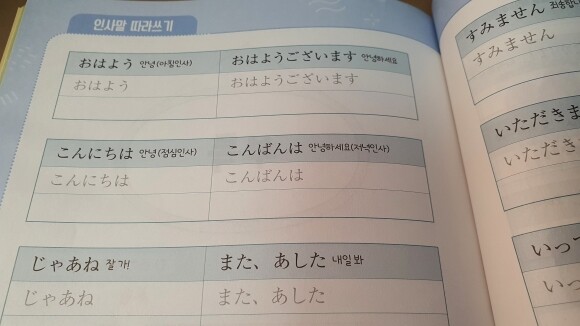 인사말 따라쓰기
おはよう 안녕(아침인사) おはようございます 안녕하세요
おはよう おはようございます
こんにちは 안녕(점심인사) こんばんは 안녕하세요(저녁인사)
こんにちは こんばんは
じゃあね 잘 개! また、あした 내일 봐
じゃあね また、あした
すみません
すみません
いただきま
いただきま
いっ
いっ